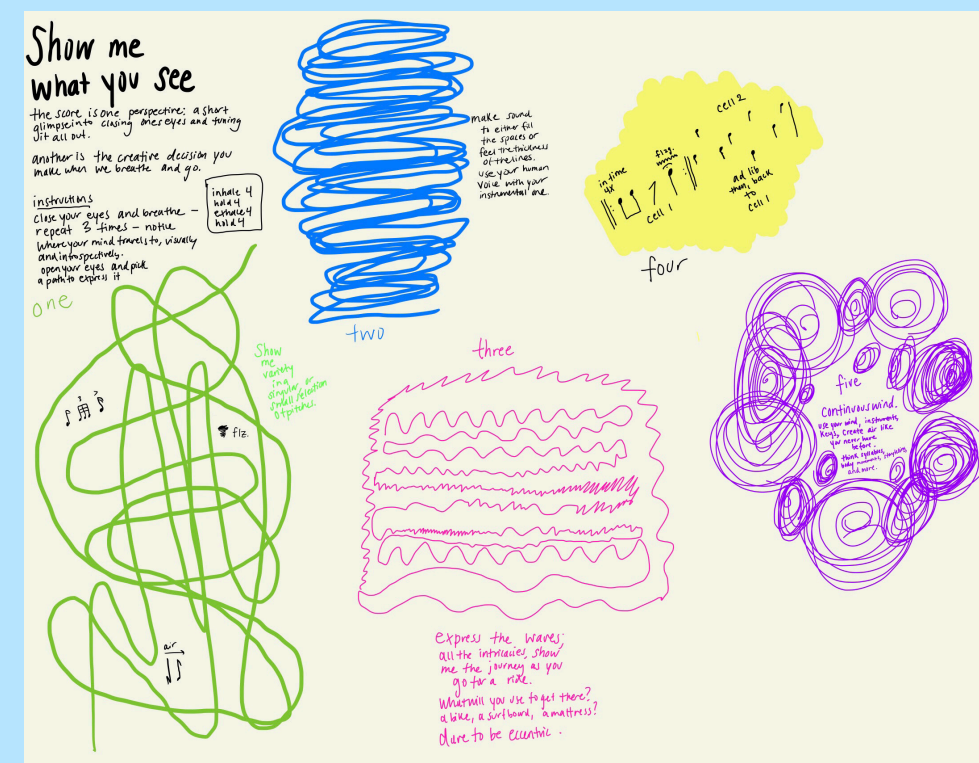 Show me
what you see
the score is one perspective; a short
glimpse into closing ones eyes and tuning
it all out.
another is the creative decision you
make when we breathe and go.
instructions
close your eyes and breathe –
repeat 3 times – notice
where your mind travels to, visually
and introspectively.
open your eyes and pick
a path to express it
inhale 4
hold 4
exhale 4
hold 4
one
Show
me
variety
in a
singular, or
small selection
of pitches.
3
flz.
air
two
make sound
to either fill
the spaces or
feel the thickness
of the lines.
use your human
voice with your
instrumental one.
three
express the waves;
all the intricacies, show
me the journey as you
go for a ride.
What will you use to get there?
a bike, a surfboard, a mattress?
dare to be eccentric.
four
in time
4x
cell 1
cell 2
ad lib
then, back
to
cell 1
five
Continuous wind.
use your wind, instruments
keys, create air like
you never have
before.
think syllables,
body movements, storytelling
and more.